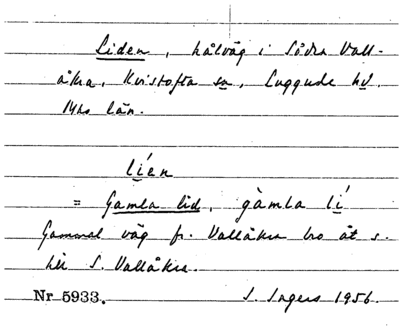 Liden, hålväg i Södra Vall-
åkra, Kvistofta sn, Luggude hd.
Mhs län.
líen
= Gamla lid, gàmla lí
Gammal väg fr. Vallåkra bro åt s.
till S. Vallåkra.
Nr 5933. S. Ingers 1956.